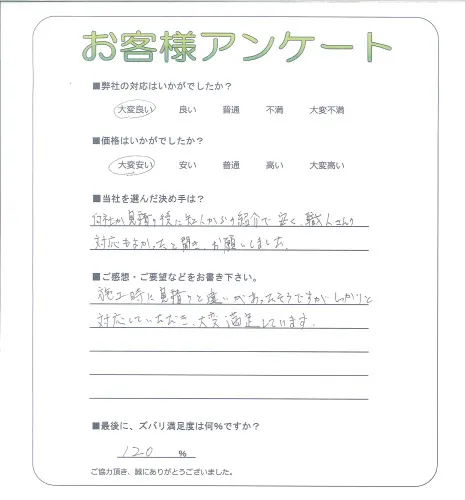 お客様アンケート
■弊社の対応はいかがでしたか？
大変良い 良い 普通 不満 大変不満
■価格はいかがでしたか？
大変安い 安い 普通 高い 大変高い
■当社を選んだ決め手は？
何社か見積り後に知人からの紹介で安く、職人さんの
対応もよかったと聞き、お願いしました。
■ご感想・ご要望などをお書き下さい。
施工時に見積りと違いがあったそうですがしっかりと
対応していただき、大変満足しています。
■最後に、ズバリ満足度は何％ですか？
120 %
ご協力頂き、誠にありがとうございました。